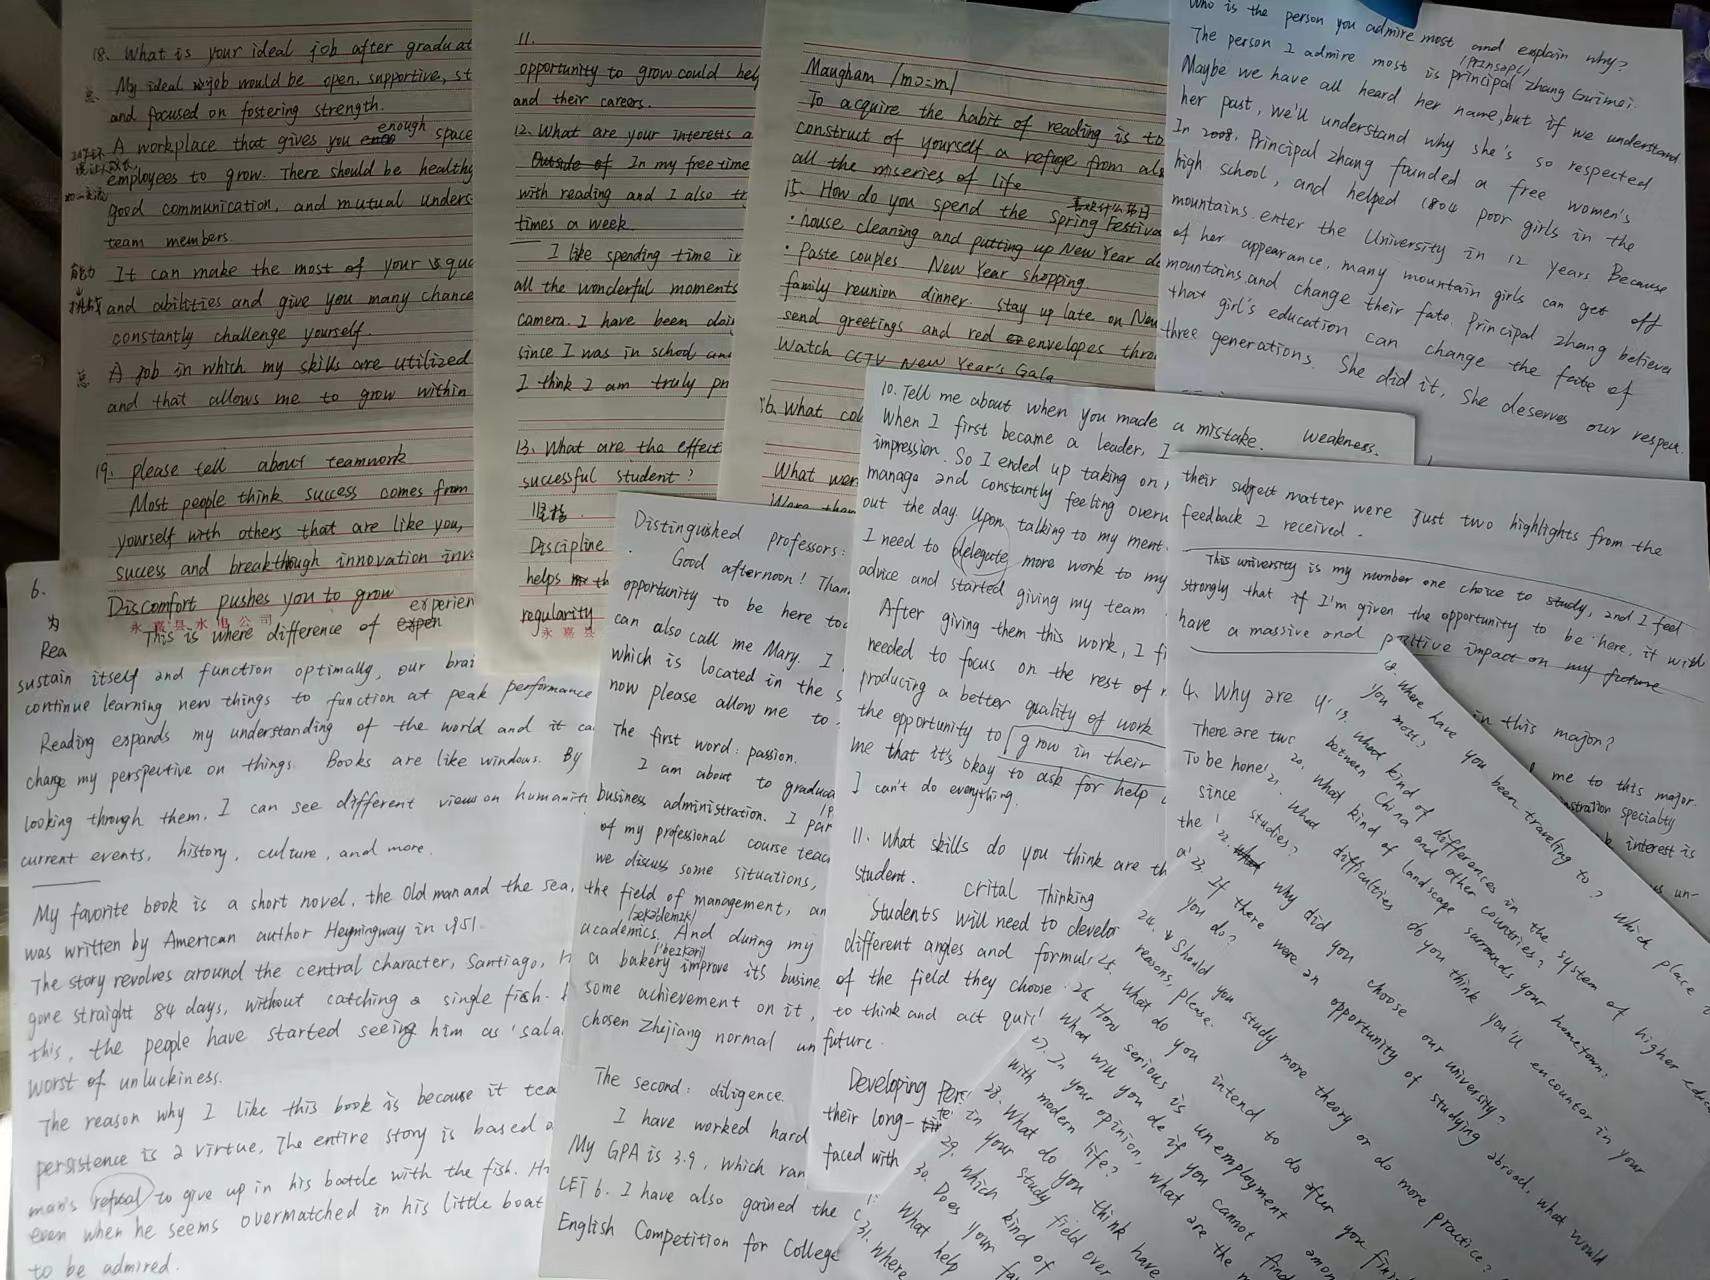 18. What is your ideal job after graduat
My ideal job would be open, supportive, st
and focused on fostering strength.
A workplace that gives you enough space
employees to grow. There should be healthy
good communication, and mutual unders
team members.
能力
It can make the most of your squ
and abilities and give you many chance
constantly challenge yourself.
A job in which my skills are utilized
and that allows me to grow within
19. please tell about teamwork
Most people think success comes from
yourself with others that are like you,
success and breakthough innovation inv
Discomfort pushes you to grow
This is where difference of experien
永嘉县水电公司
11.
opportunity to grow could help
and their careers.
12. What are your interests a
Outside of In my free time
with reading and I also tr
times a week.
I like spending time in
all the wonderful moments
camera. I have been doin
since I was in school and
I think I am truly pr
13. What are the effect
successful student?
Discipline
helps th
regularity
永嘉县
Maugham /mɔ=m/
To acquire the habit of reading is to
construct of yourself a refuge from al
all the miseries of life
15. How do you spend the Spring Festiva
· house cleaning and putting up New Year de
· Paste couples New Year shopping
family reunion dinner. stay up late on New
send greetings and red envelopes thro
Watch CCTV New Year's Gala
16. What col
What wer
Were then
Who is the person you admire most and explain why?
The person I admire most is principal Zhang Guimei.
Maybe we have all heard her name, but if we understand
her past, we'll understand why she's so respected
In 2008, Principal Zhang founded a free women's
high school, and helped 1804 poor girls in the
mountains enter the University in 12 years. Because
of her appearance, many mountain girls can get off
mountains and change their fate. Principal Zhang believes
that girl's education can change the fate of
three generations. She did it, She deserves our respect.
6.
为
Rea
sustain itself and function optimally, our brai
continue learning new things to function at peak performance
Reading expands my understanding of the world and it ca
change my perspective on things. Books are like windows. By
looking through them, I can see different views on humanit
current events, history, culture, and more.
My favorite book is a short novel, the Old man and the sea,
was written by American author Heymingway in 1951.
The story revolves around the central character, Santiago, H
gone straight 84 days, without catching a single fish.
this, the people have started seeing him as 'sala
worst of unluckiness.
The reason why I like this book is because it tea
persistence is a virtue, The entire story is based o
man's refusal to give up in his battle with the fish. Hi
even when he seems overmatched in his little boat
to be admired.
Distinguished professors:
Good afternoon! Than
opportunity to be here tod
can also call me Mary. I
which is located in the s
now please allow me to
The first word: passion.
I am about to gradua
business administration. I par
of my professional course teac
we discuss some situations,
the field of management, an
academics. And during my
a bakery improve its busine
some achievement on it,
chosen Zhejiang normal un
The second: diligence.
I have worked hard
My GPA is 3.9, which ran
CET 6. I have also gained the
English Competition for College
10. Tell me about when you made a mistake. weakness.
When I first became a leader, I
impression. So I ended up taking on
manage and constantly feeling overw
out the day. Upon talking to my ment
I need to delegate more work to my
advice and started giving my team
After giving them this work, I fi
needed to focus on the rest of
producing a better quality of work
the opportunity to grow in their
me that it's okay to ask for help
I can't do everything.
11. What skills do you think are th
student.
Crital Thinking
Students will need to develop
different angles and formul
of the field they choose
to think and act quic
future.
Developing Pers
their long-te
faced with
their subject matter were just two highlights from the
feedback I received.
This university is my number one choice to study, and I feel
strongly that if I'm given the opportunity to be here, it will
have a massive and positive impact on my future
4. Why are y in this major?
There are two me to this major.
To be hone stration specialty
since interest is
the un-
18. Where have you been traveling to? Which place
you most?
19. What kind of differences in the system of higher educ
between China and other countries?
20. What kind of landscape surrounds your hometown?
21. What difficulties do you think you'll encounter in your
studies?
22. Why did you choose our university?
23. If there were an opportunity of studying abroad, what would
you do?
24. Should you study more theory or do more practice?
reasons, please.
25. What do you intend to do after you fini
26. How serious is unemployment amon
What will you do if you cannot find
27. In your opinion, what are the m
with modern life?
28. What do you think have
in your study field over
29. Which kind of
30. Does your fa
What help
31. Where